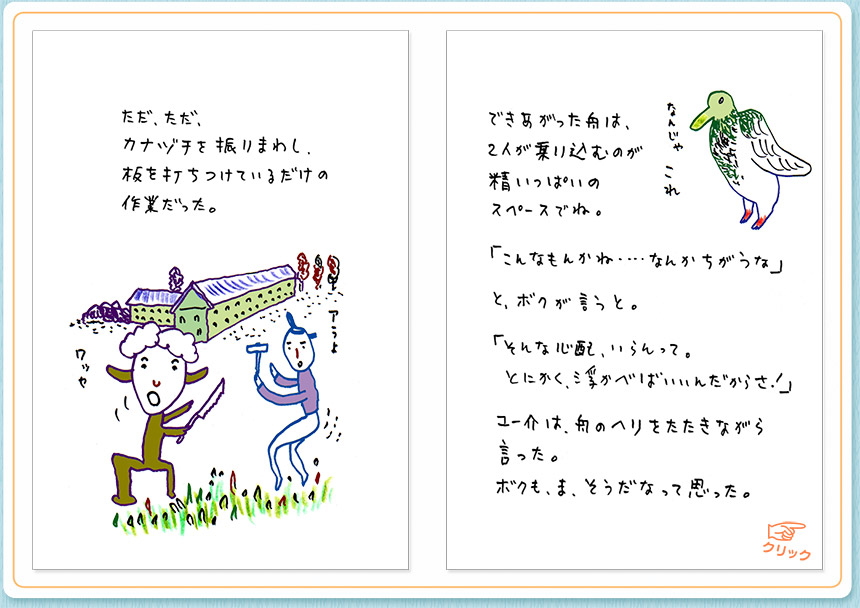 ただ、ただ、
カナヅチを振りまわし、
板を打ちつけているだけの
作業だった。
アラよ
ワッセ
できあがった舟は、
2人が乗り込むのが
精いっぱいの
スペースでね。
なんじゃ これ
「こんなもんかね‥‥なんかちがうな」
と、ボクが言うと。
「そんな心配、いらんって。
とにかく、浮かべばいいんだからさ！」
ユー介は、舟のヘリをたたきながら
言った。
ボクも、ま、そうだなって思った。
クリック